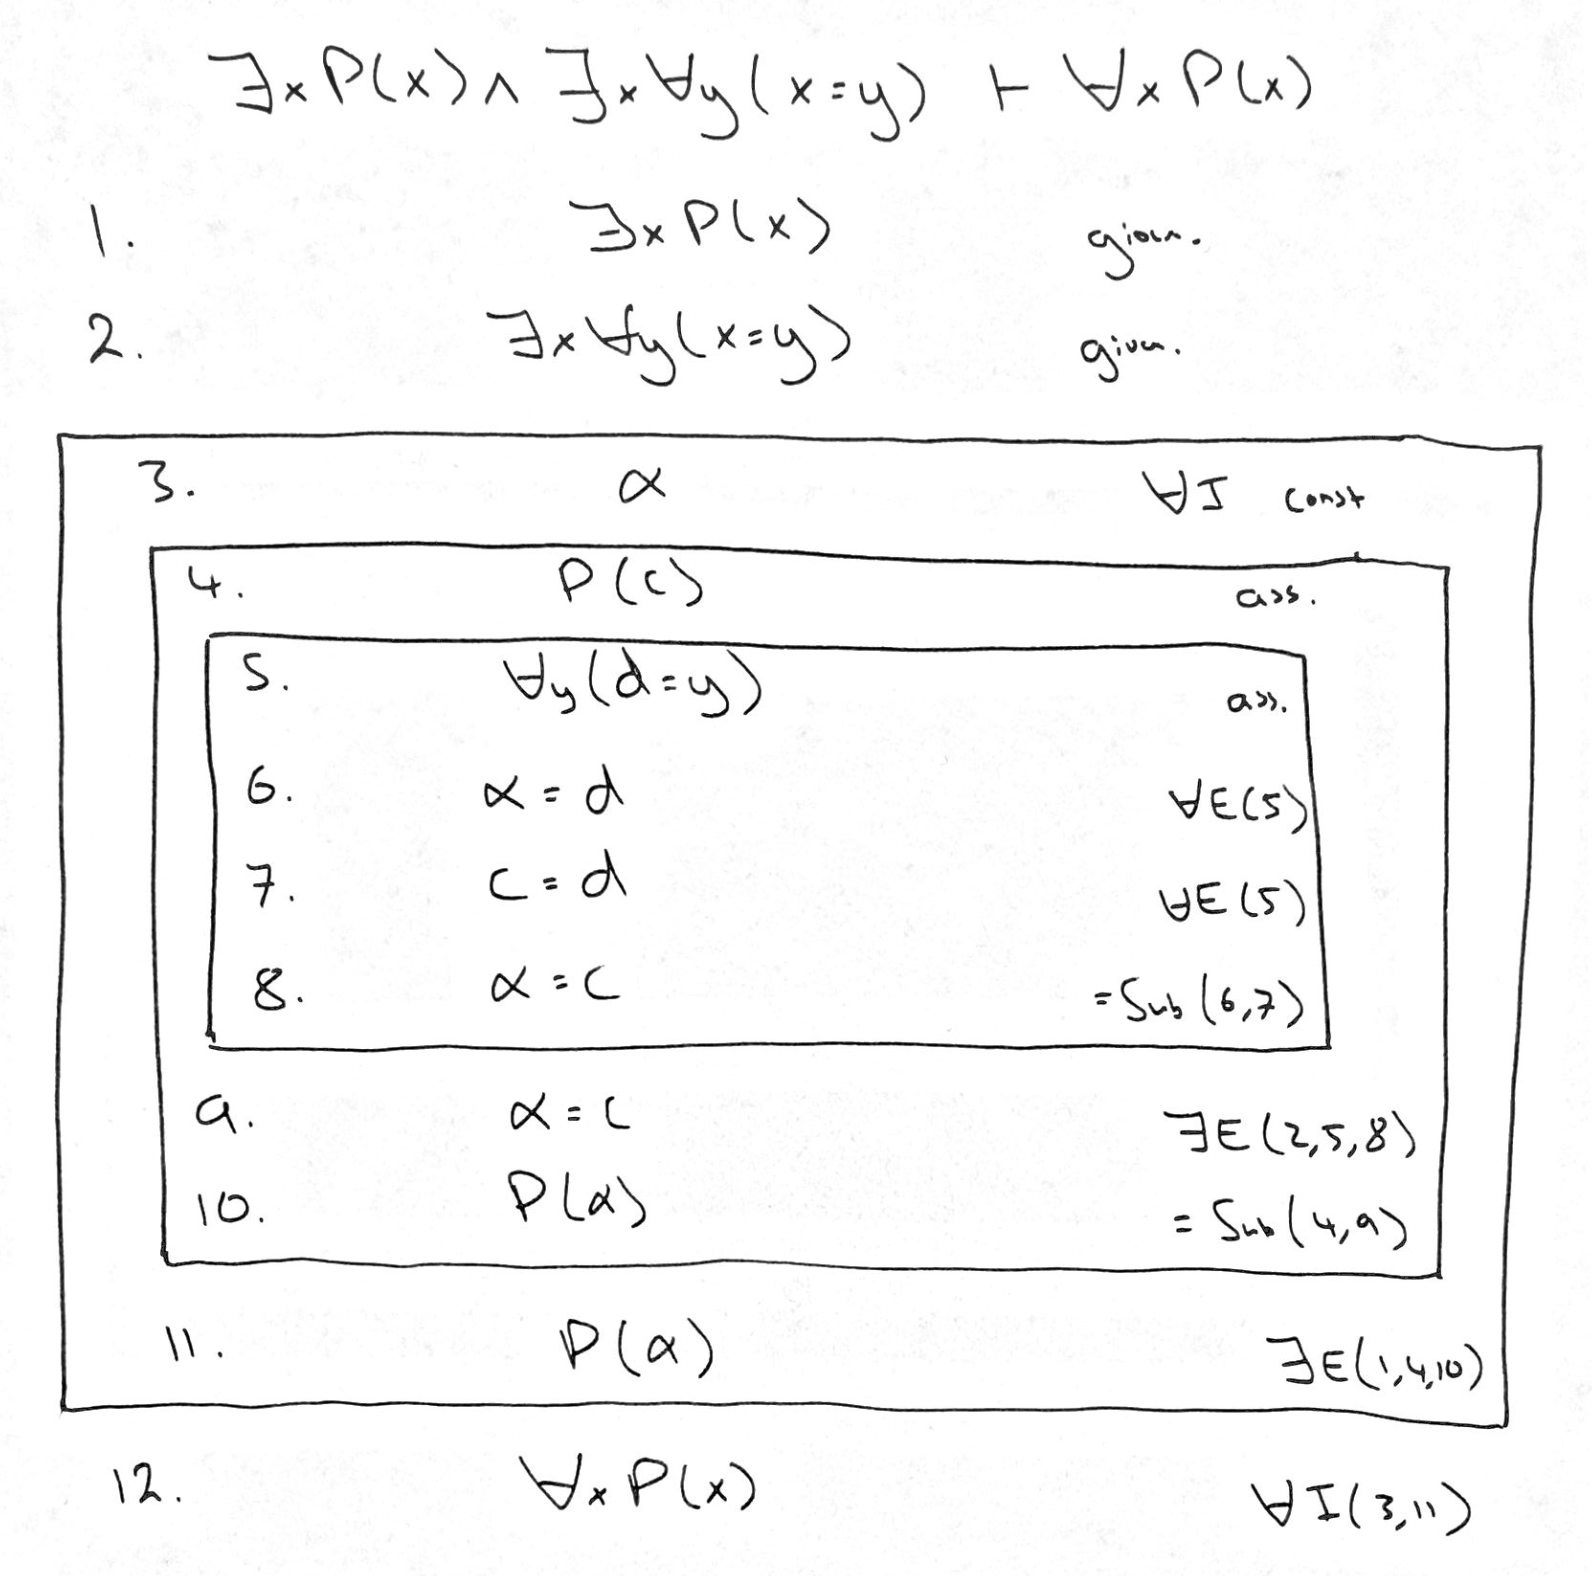 ∃x P(x) ∧ ∃x ∀y (x=y) ⊢ ∀x P(x)
1. ∃x P(x) given.
2. ∃x ∀y (x=y) given.
3. α ∀I const
4. P(c) ass.
5. ∀y (d=y) ass.
6. α = d ∀E(5)
7. c = d ∀E(5)
8. α = c =Sub(6,7)
9. α = c ∃E(2,5,8)
10. P(α) =Sub(4,9)
11. P(α) ∃E(1,4,10)
12. ∀x P(x) ∀I(3,11)